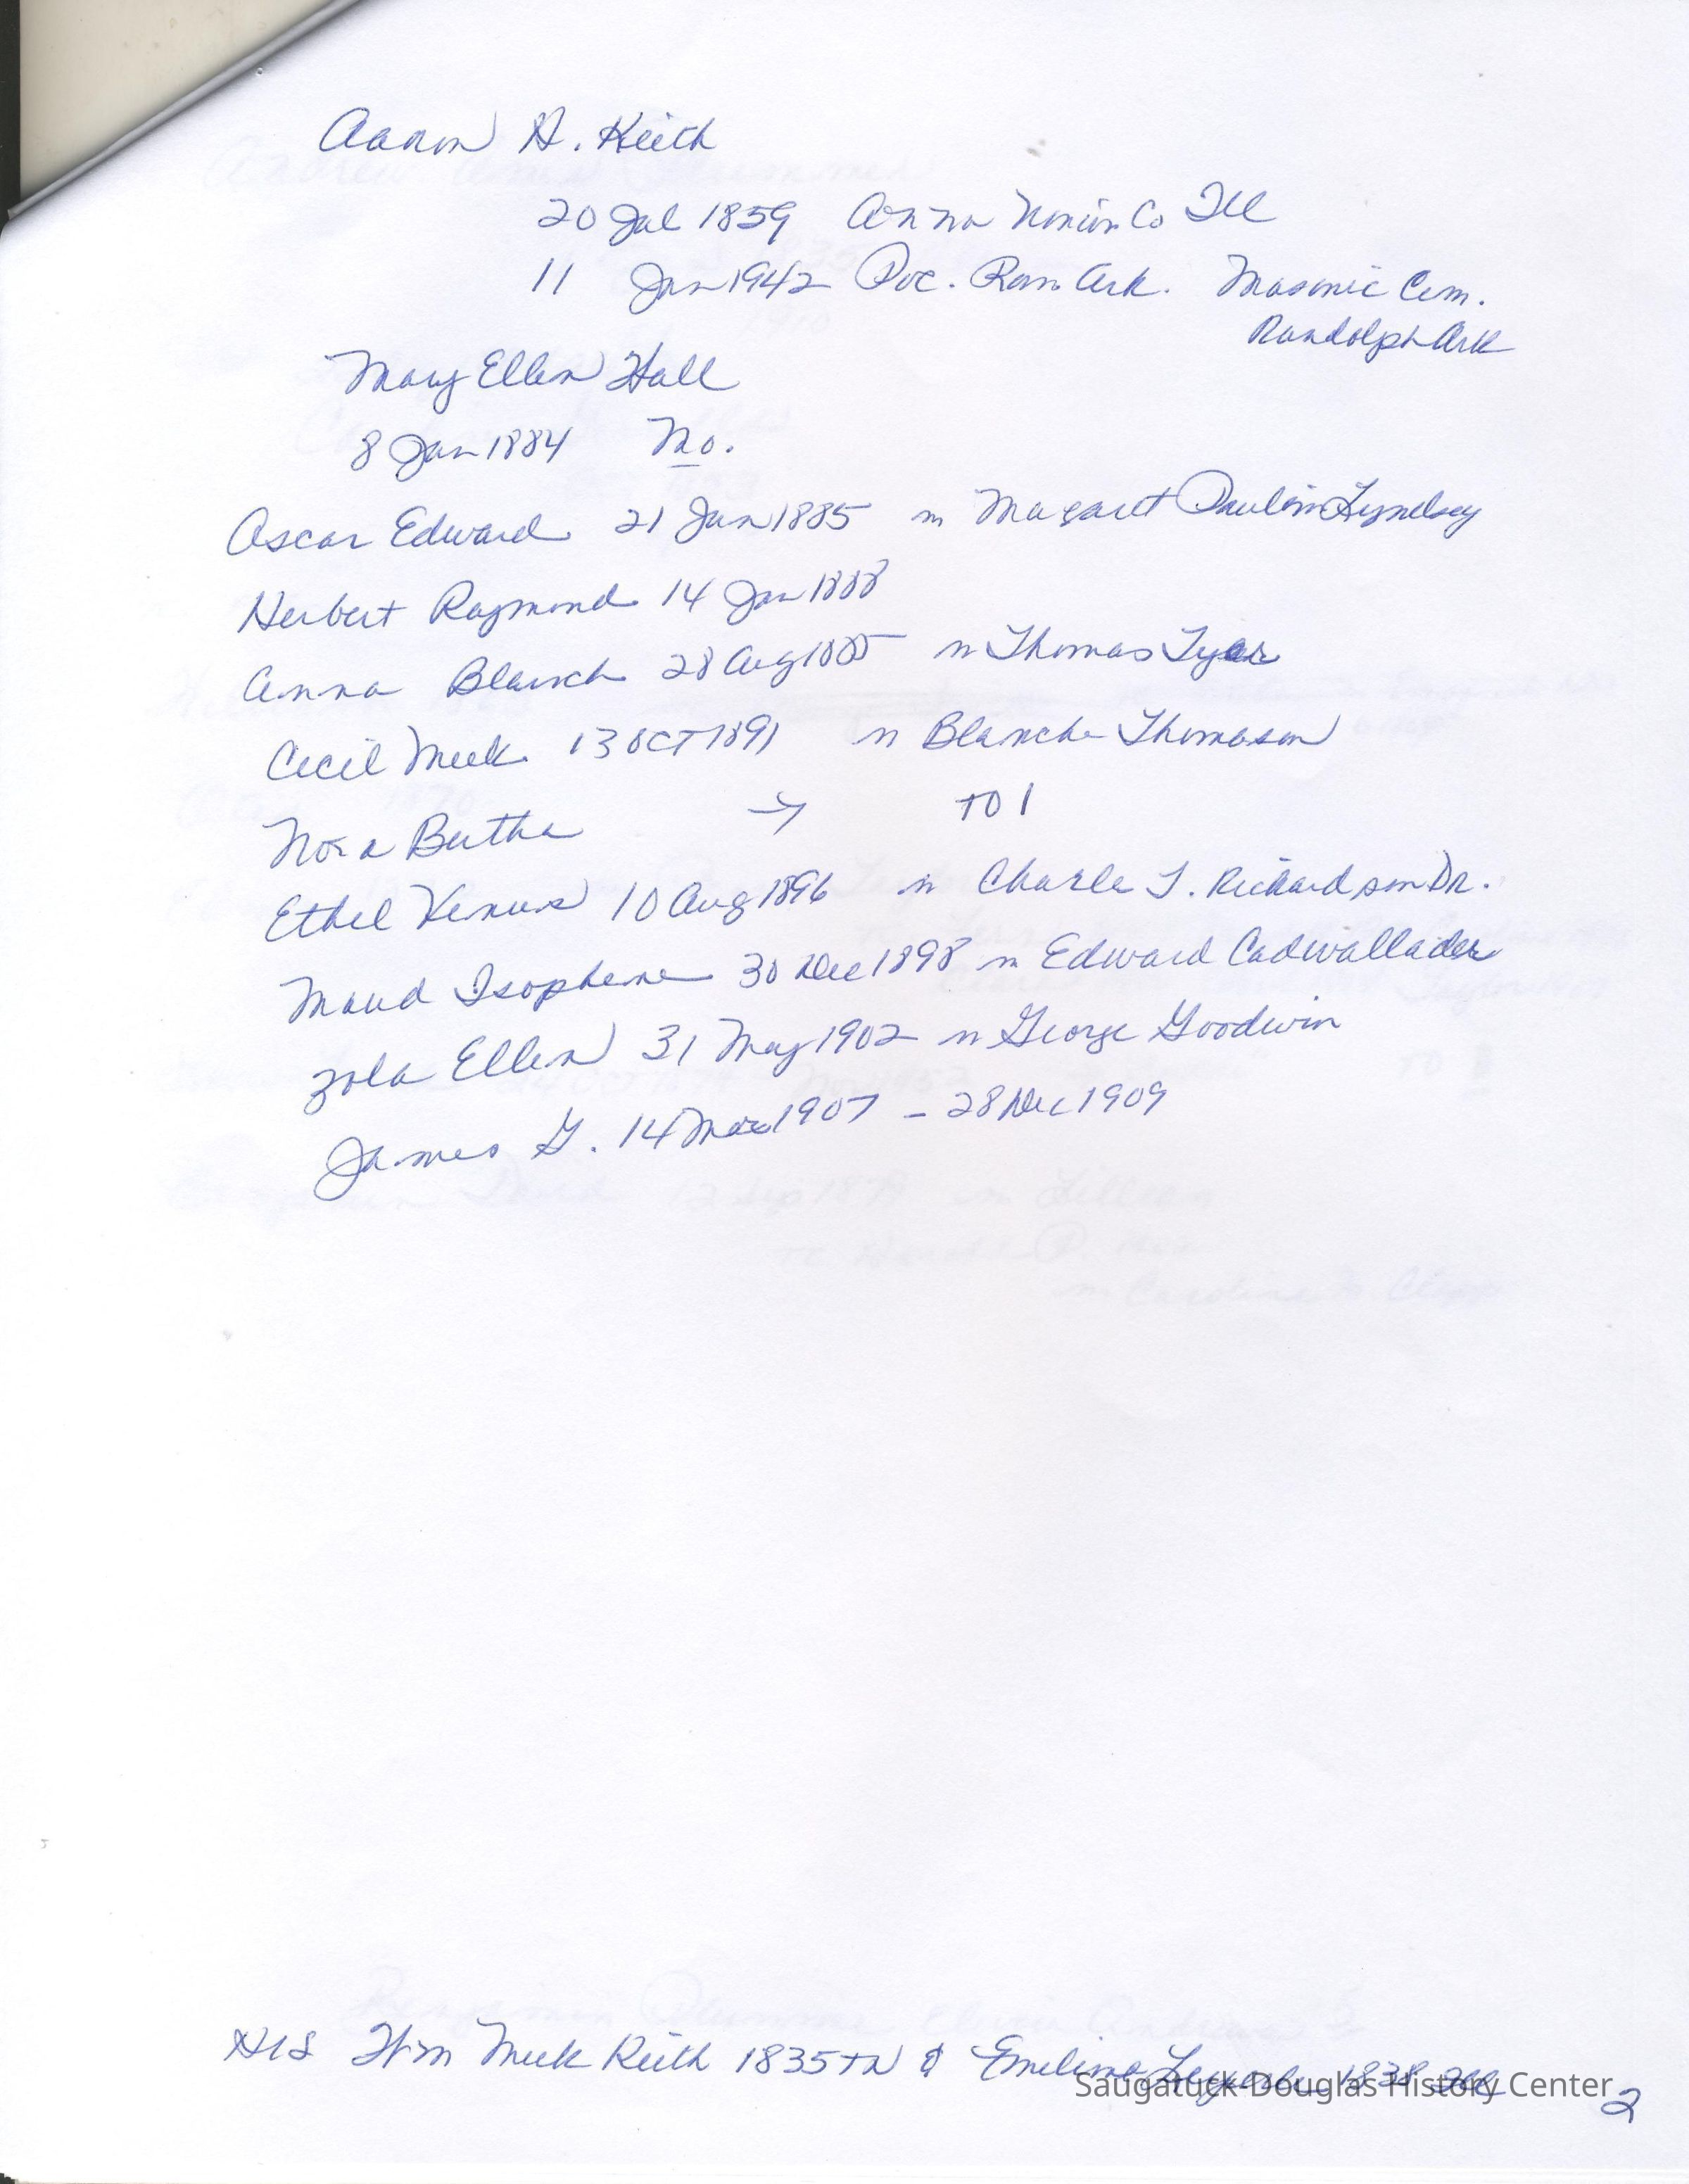 Aaron H. Keith
20 Jul 1859 Anna Union Co Ill
11 Jan 1942 Poc. Ran. Ark. Masonic Cem.
Randolph Ark
Mary Ellen Hall
8 Jan 1884 Mo.
Oscar Edward 21 Jan 1885 m Magaret Paulin Lyndsey
Herbert Raymond 14 Jan 1888
Anna Blanch 28 Aug m Thomas Tyer
Cecil Meek 13 OCT 1891 m Blanche Thomason
Nora Bertha → TO 1
Ethel Venus 10 Aug 1896 m Charle T. Richardson Dr.
Maud Isophene 30 Dec 1898 m Edward Cadwallader
Zola Ellen 31 May 1902 m George Goodwin
James G. 14 Mar 1907 - 28 Dec 1909
HIS Wm Meek Keith 1835 TN & Emeline 1838 Ill
Saugatuck-Douglas History Center
2